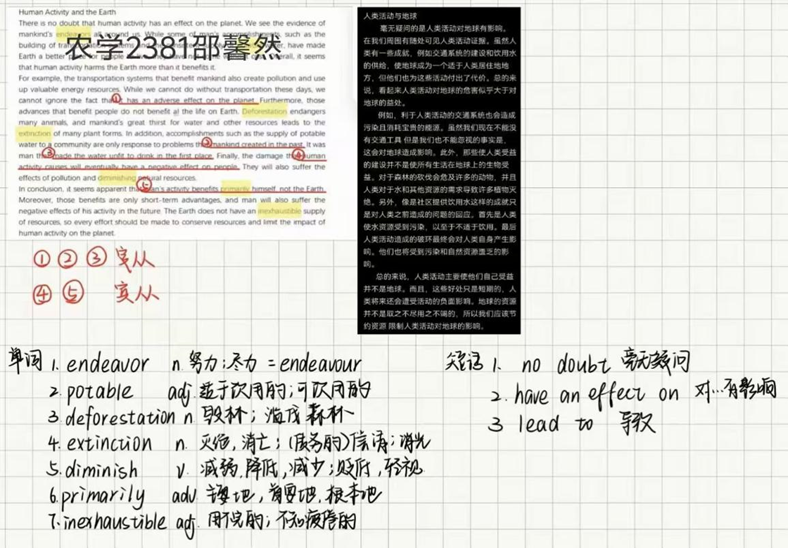 Human Activity and the Earth
There is no doubt that human activity has an effect on the planet. We see the evidence of
mankind's all around us. While some of such as the
building of have made
Earth a better it seems
that human activity harms the Earth more than it benefits it.
农学2381邵馨然
For example, the transportation systems that benefit mankind also create pollution and use
up valuable energy resources. While we cannot do without transportation these days, we
cannot ignore the fact that ① has an adverse effect on the planet. Furthermore, those
advances that benefit people do not benefit all the life on Earth. Deforestation endangers
many animals, and mankind's great thirst for water and other resources leads to the
extinction of many plant forms. In addition, accomplishments such as the supply of potable
water to a community are only response to problems ② mankind created in the past. It was
man ③ made the water unfit to drink in the first place. Finally, the damage ④ human
activity causes will eventually have a negative effect on people. They will also suffer the
effects of pollution and diminishing natural resources.
In conclusion, it seems apparent ⑤ man's activity benefits primarily himself, not the Earth.
Moreover, those benefits are only short-term advantages, and man will also suffer the
negative effects of his activity in the future. The Earth does not have an inexhaustible supply
of resources, so every effort should be made to conserve resources and limit the impact of
human activity on the planet.
① ② ③ 定从
④ ⑤ 宾从
人类活动与地球
毫无疑问的是人类活动对地球有影响。
在我们周围有随处可见人类活动证据。虽然人
类有一些成就，例如交通系统的建设和饮用水
的供给，使地球成为一个适于人类居住地地
方，但他们也为这些活动付出了代价。总的来
说，看起来人类活动对地球的危害似乎大于对
地球的益处。
例如，利于人类活动的交通系统也会造成
污染且消耗宝贵的能源。虽然我们现在不能没
有交通工具 但是我们也不能忽视的事实是，
这会对地球造成影响。此外，那些使人类受益
的建设并不是使所有生活在地球上的生物受
益。对于森林的砍伐会危及许多的动物，并且
人类对于水和其他资源的需求导致许多植物灭
绝。另外，像是社区提供饮用水这样的成就只
是对人类之前造成的问题的回应。首先是人类
使水资源受到污染，以至于不适于饮用。最后
人类活动造成的破坏最终会对人类自身产生影
响。他们也将受到污染和自然资源匮乏的影
响。
总的来说，人类活动主要使他们自己受益
并不是地球。而且，这些好处只是短期的，人
类将来还会遭受活动的负面影响。地球的资源
并不是取之不尽用之不竭的，所以我们应该节
约资源 限制人类活动对地球的影响。
单词 1. endeavor n. 努力；尽力 = endeavour
2. potable adj. 适于饮用的；可饮用的
3. deforestation n. 毁林；滥伐森林
4. extinction n. 灭绝，消亡；(债务的)偿清；消光
5. diminish v. 减弱，降低，减少；贬低，轻视
6. primarily adv. 主要地，首要地，根本地
7. inexhaustible adj. 用不完的；不知疲倦的
短语 1. no doubt 毫无疑问
2. have an effect on 对…有影响
3 lead to 导致